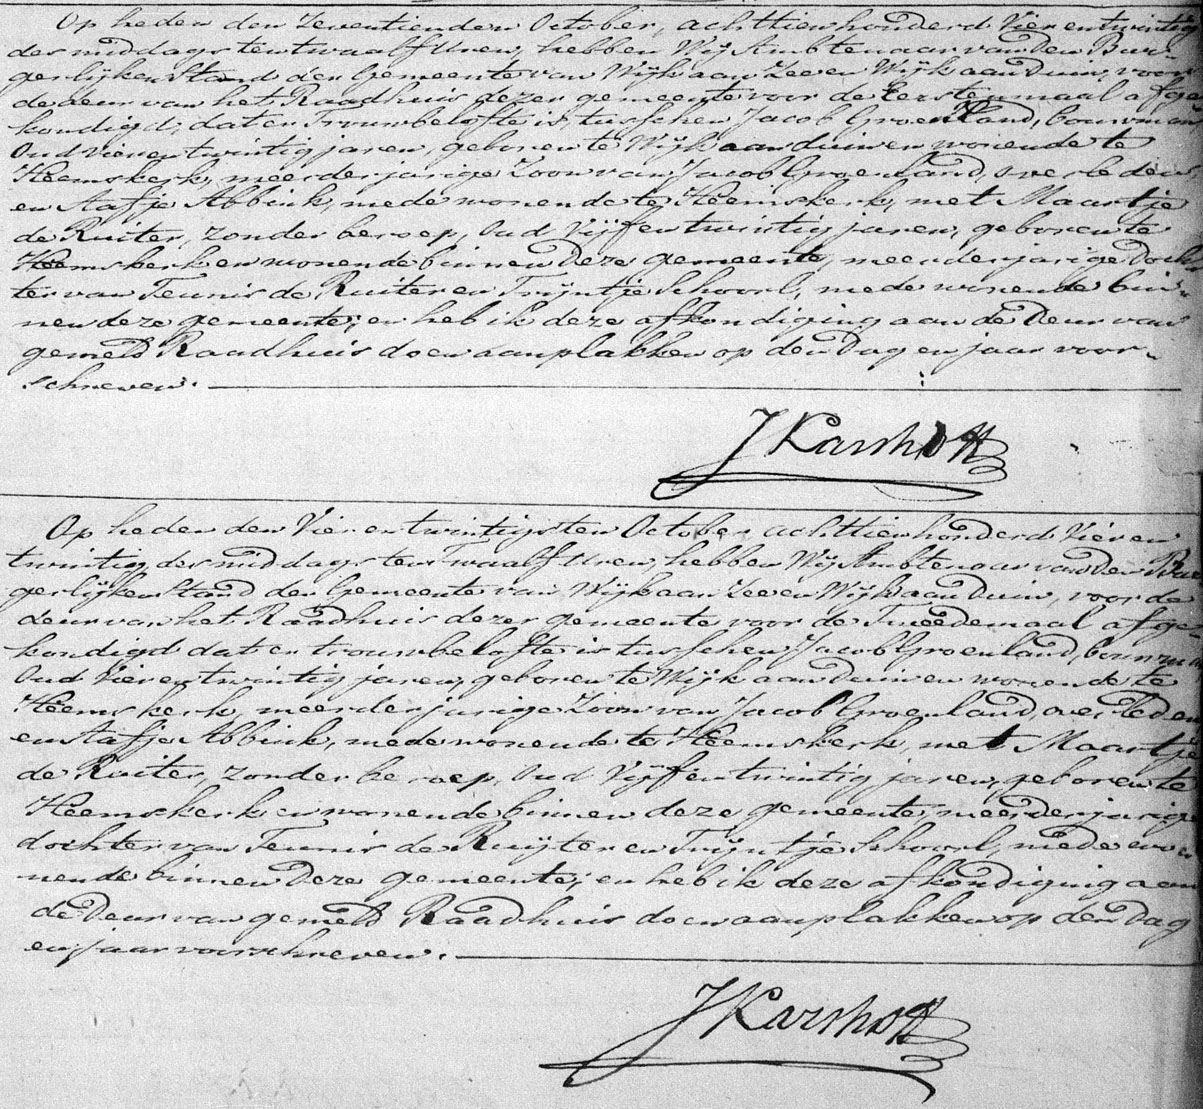 Op heden den Zeventienden October, achttienhonderd Vier en twintig
des middags ten twaalf Uren, hebben Wij Ambtenaar van den Bur
gerlijken Stand der Gemeente van Wijk aan Zee en Wijk aan Duin, voor
de deur van het Raadhuis dezer gemeente voor de Eerstemaal afge
kondigd, dat er Trouwbelofte is, tusschen Jacob Groenland, bouwman
Oud vier en twintig jaren, geboren te Wijk aan duin en wonende te
Heemskerk, meerderjarige Zoon van Jacob Groenland, overleden,
en Aafje Abbink, mede wonende te Heemskerk, met Maartje
de Ruiter, zonder beroep, Oud Vijf en twintig jaren, geboren te
Heemskerk en wonende binnen Deze gemeente, meerderjarige Doch
ter van Teunis de Ruiter en Trijntje Schoorl, mede wonende bin-
nen deze gemeente; en heb ik deze afkondiging aan de Deur van
gemeld Raadhuis doen aanplakken op den Dag en jaar voor-
schreven.
J Karshoff
Op heden den Vier en twintigsten October achttienhonderd Vier en
twintig des middags ten Twaalf Uren, hebben Wij Ambtenaar van den Bur
gerlijken Stand der Gemeente van Wijk aan Zee en Wijk aan Duin, voor de
deur van het Raadhuis dezer gemeente voor de Tweedemaal afge
kondigd dat er trouwbelofte is tusschen Jacob Groenland, bouwman
Oud Vier en twintig jaren, geboren te Wijk aan Duin en wonende te
Heemskerk, meerderjarige Zoon van Jacob Groenland, overleden
en Aafje Abbink, mede wonende te Heemskerk, met Maartje
de Ruiter, zonder beroep, Oud Vijf en twintig jaren, geboren te
Heemskerk en wonende binnen deze gemeente, meerderjarige
dochter van Teunis de Ruijter en Trijntje Schoorl, mede wo
nende binnen Deze gemeente; en heb ik deze afkondiging aan
de Deur van gemeld Raadhuis doen aanplakken op den Dag
en jaar voorschreven.
J Karshoff